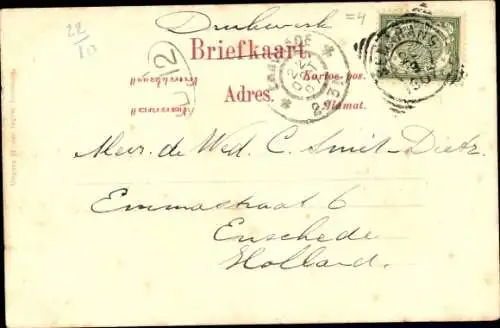 Drukwerk
=4
22
10
Briefkaart.
Kartoe-pos.
Adres.
Alamat.
2
SEMARANG
Mevr. de Wed. C. Smit-Dietz.
Emmastraat 6
Enschede
Holland.